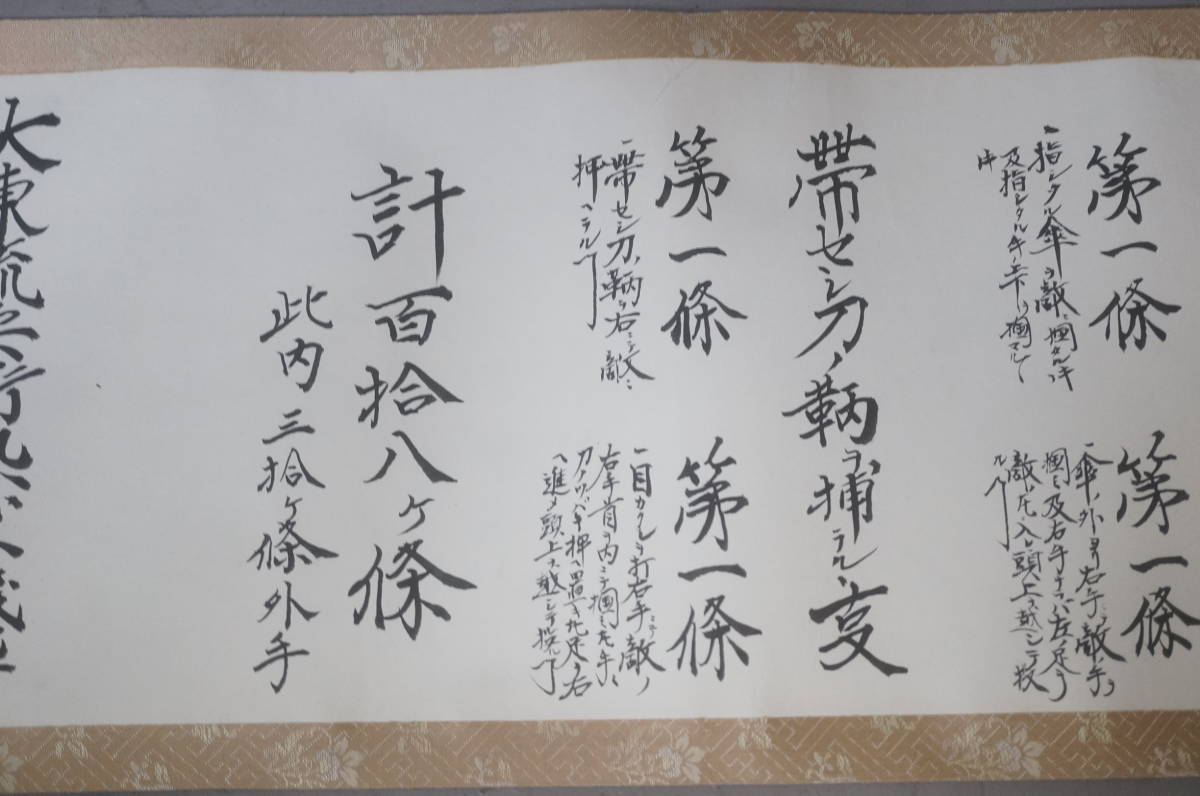 第一條
一指シタル傘ヲ敵ニ掴タルトキ
及指シタル手ノ上下ヨリ掴マル
件
第一條
一傘ノ外ヨリ右手ニテ敵ノ手ヲ
掴ミ及右手ナラハ左ノ足ヲ
敵ノ 入レ頭上ヲ越シテ投
ル
帯セシ刀ノ鞆ヲ捕ラル事
第一條
一帯セシ刀ノ鞆ヲ右ニテ又ハ敵ニ
押ヘラル
第一條
一目カクシヲ打右手ニテ敵ノ
右手首ヲ内ニテ掴ミ左手ハ
刀ノツバヲ押ヘ置キ左足ヲ右
ヘ進メ頭上ヲ越シテ投ル
計百拾八ケ條
此内三拾ケ條外手
大東流